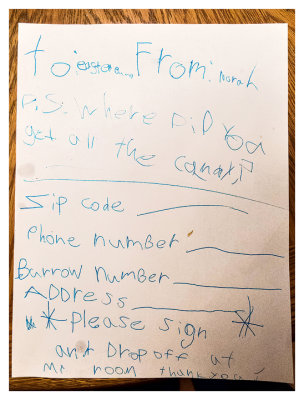 to: easter From: Norah
P.S. Where DiD you
get all the canay?
Sip code
Phone number
Burrow number
ADDress
* Please sign *
anit Drop off at
Mr room thank you!